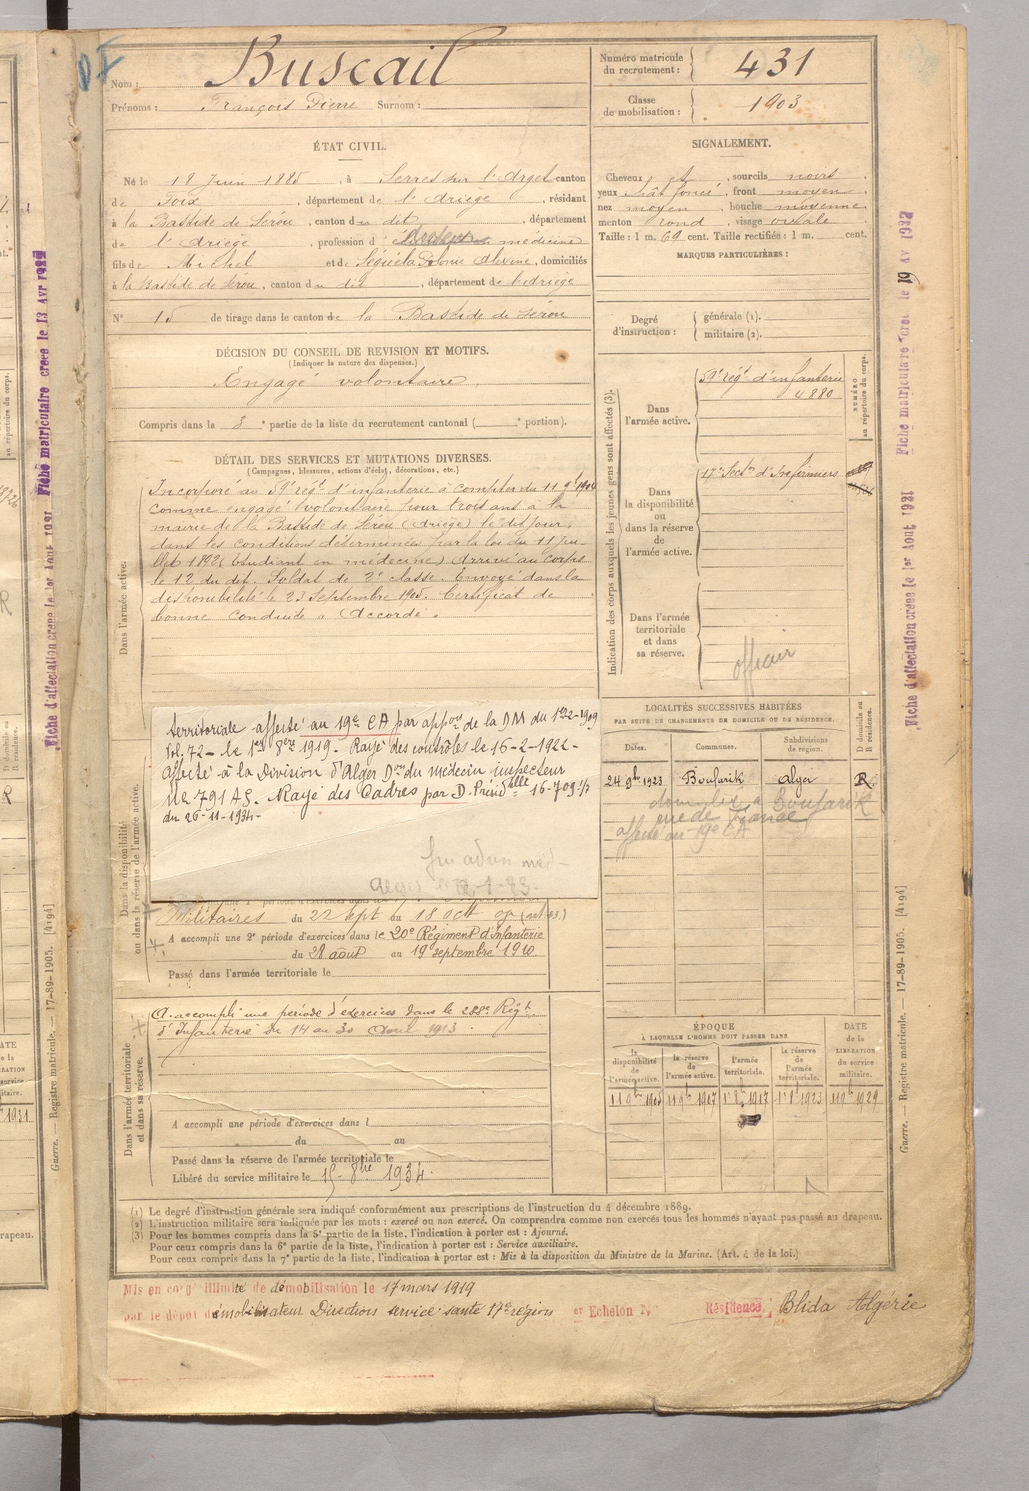 Nom : Buscail
Prénoms : François Pierre Surnom :
Numéro matricule
du recrutement : 431
Classe
de mobilisation : 1903
ÉTAT CIVIL.
Né le 18 Juin 1885, à Serres sur l'Arget canton
de Foix, département de l'Ariège, résidant
à la Bastide de Sérou, canton du dit, département
de l'Ariège, profession d' médecine
fils de Michel et de domiciliés
à la Bastide de Sérou, canton du dit, département de l'Ariège
N° 15 de tirage dans le canton de la Bastide de Sérou
SIGNALEMENT.
Cheveux et, sourcils noirs
yeux chât foncé, front moyen
nez moyen, bouche moyenne
menton rond, visage ovale
Taille : 1 m. 69 cent. Taille rectifiée : 1 m. cent.
MARQUES PARTICULIÈRES :
Degré
d'instruction :
générale (1).
militaire (2).
DÉCISION DU CONSEIL DE REVISION ET MOTIFS.
(Indiquer la nature des dispenses.)
Engagé volontaire
Compris dans la 3e partie de la liste du recrutement cantonal ( e portion).
DÉTAIL DES SERVICES ET MUTATIONS DIVERSES.
(Campagnes, blessures, actions d'éclat, décorations, etc.)
Dans l'armée active.
Incorporé au 59e régt d'infanterie à compter du 11 9bre 1904
comme engagé volontaire pour trois ans à la
mairie de la Bastide de Sérou (Ariège) le dit jour,
dans les conditions déterminées par la loi du 11 jui-
llet 1892 (étudiant en médecine) Arrivé au corps
le 12 du dit. Soldat de 2e classe. Envoyé dans la
disponibilité le 23 Septembre 1905. Certificat de
bonne conduite "Accordé".
Indication des corps auxquels les jeunes gens sont affectés (3).
NUMÉRO
au répertoire du corps.
Dans
l'armée active.
59e régt d'infanterie
4880
Dans
la disponibilité
ou
dans la réserve
de
l'armée active.
17e Sectn d'Infirmiers
Dans l'armée
territoriale
et dans
sa réserve.
officier
Dans la disponibilité
ou dans la réserve de l'armée active.
territoriale affecté au 19e CA par appon de la DM du
Vol. 72 - le 1er 8bre 1919. Rayé des contrôles le 16-2-1922 -
affecté à la Division d'Alger Don du médecin inspecteur
No 791 AS. Rayé des Cadres par D. Présidlle 16-709 1/7
du 26-11-1934-
Militaires du 22 Sept au 18 oct
A accompli une 2e période d'exercices dans le 20e Régiment d'Infanterie
du 28 août au 19 septembre 1910
Passé dans l'armée territoriale le
Dans l'armée territoriale
et dans sa réserve.
A accompli une période d'exercices dans le 288e Régt
d'Infanterie du 14 au 30 Avril 1913
A accompli une période d'exercices dans l
du au
Passé dans la réserve de l'armée territoriale le
Libéré du service militaire le 15 8bre 1934.
LOCALITÉS SUCCESSIVES HABITÉES
PAR SUITE DE CHANGEMENTS DE DOMICILE OU DE RÉSIDENCE.
Dates. Communes. Subdivisions
de région. D domicile ou
R résidence.
24 9bre 1923 Boufarik Alger R
domicilié à Boufarik
rue de France
affecté au 19e CA
ÉPOQUE
À LAQUELLE L'HOMME DOIT PASSER DANS
DATE
de la
LIBÉRATION
du service
militaire.
la
disponibilité
de
l'armée active.
la réserve
de
l'armée active.
l'armée
territoriale.
la réserve
de
l'armée
territoriale.
11 9bre 1907 1923 11 9bre 1929
(1) Le degré d'instruction générale sera indiqué conformément aux prescriptions de l'instruction du 4 décembre 1889.
(2) L'instruction militaire sera indiquée par les mots : exercé ou non exercé. On comprendra comme non exercés tous les hommes n'ayant pas passé au drapeau.
(3) Pour les hommes compris dans la 5e partie de la liste, l'indication à porter est : Ajourné.
Pour ceux compris dans la 6e partie de la liste, l'indication à porter est : Service auxiliaire.
Pour ceux compris dans la 7e partie de la liste, l'indication à porter est : Mis à la disposition du Ministre de la Marine. (Art. 4 de la loi.)
Mis en congé illimité de démobilisation le 17 mars 1919
par le dépôt démobilisateur Direction service santé 17e région er Echelon N° Résidence, Blida Algérie
Fiche matriculaire créée le 13 Avr 1922
Fiche d'affectation créée le 1er Aout 1921
Fiche d'affectation créée le 1er Aout 1921 Fiche matriculaire créée le 19 Av 1922
Guerre. — Registre matricule. — 17-89-1905. [4194]
Guerre. — Registre matricule. — 17-89-1905. [4194]